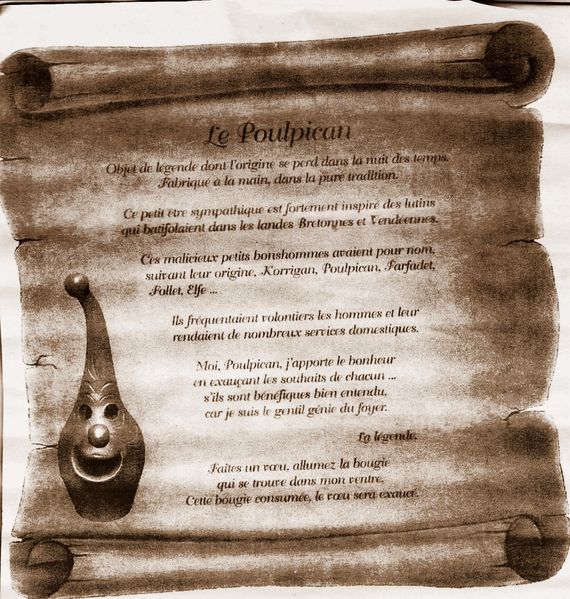 Le Poulpican
Objet de légende dont l'origine se perd dans la nuit des temps.
Fabriqué à la main, dans la pure tradition.
Ce petit être sympathique est fortement inspiré des lutins
qui batifolaient dans les landes Bretonnes et Vendéennes.
Ces malicieux petits bonshommes avaient pour nom,
suivant leur origine, Korrigan, Poulpican, Farfadet,
Follet, Elfe ...
Ils fréquentaient volontiers les hommes et leur
rendaient de nombreux services domestiques.
Moi, Poulpican, j'apporte le bonheur
en exauçant les souhaits de chacun ...
s'ils sont bénéfiques bien entendu,
car je suis le gentil génie du foyer.
La légende.
Faites un vœu, allumez la bougie
qui se trouve dans mon ventre.
Cette bougie consumée, le vœu sera exaucé.